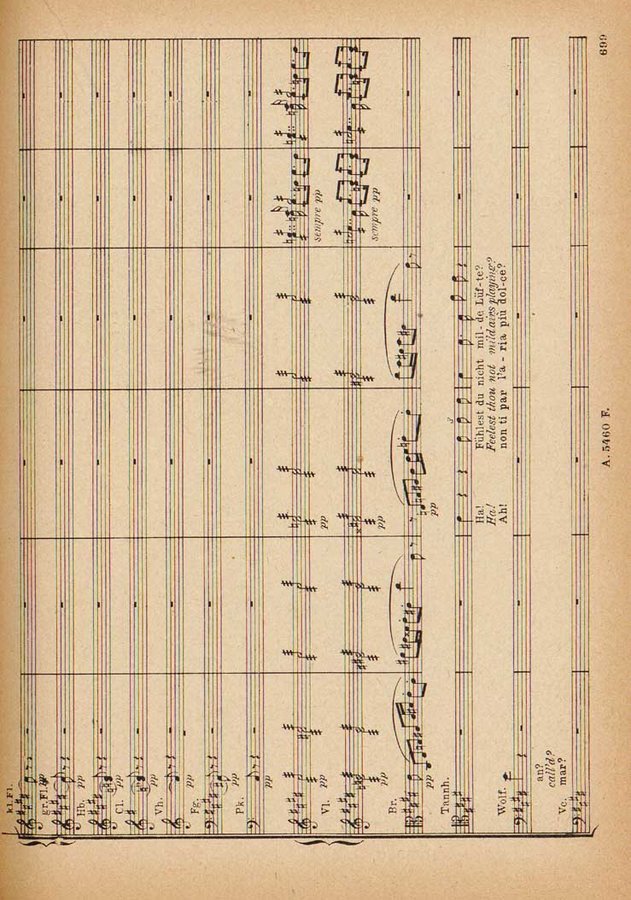 699
kl.Fl.
gr.Fl. pp
pp
Hb. pp
Cl. pp
Vh. pp
Fg. pp
Pk. pp
Vl. pp pp sempre pp
pp pp sempre pp
Br. pp pp
Tannh.
Ha! Fühlest du nicht mil - de Lüf - te?
Ha! Feelest thou not mild airs playing?
Ah! non ti par l'a - ria più dol - ce?
3
Wolf.
an?
call'd?
mar?
Vc.
A. 5460 F.